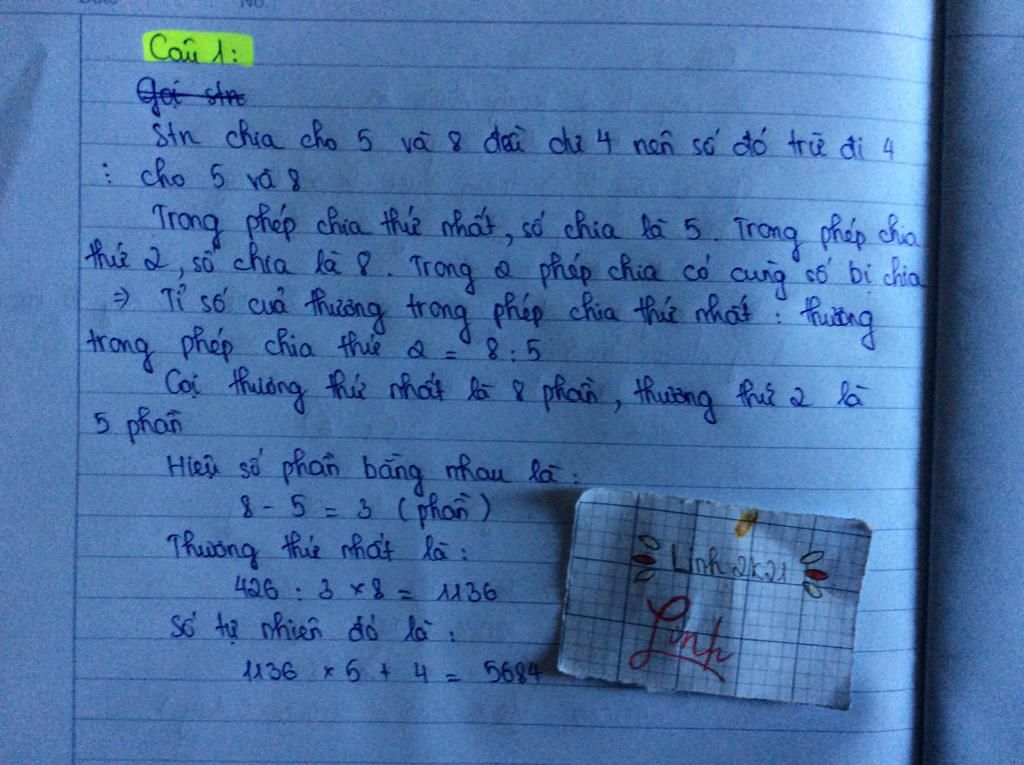 Câu 1:
Gọi stn
Stn chia cho 5 và 8 đều dư 4 nên số đó trừ đi 4
⋮ cho 5 và 8
Trong phép chia thứ nhất, số chia là 5. Trong phép chia
thứ 2, số chia là 8. Trong 2 phép chia có cùng số bị chia
⇒ Tỉ số của thương trong phép chia thứ nhất : thương
trong phép chia thứ 2 = 8 : 5
Coi thương thứ nhất là 8 phần, thương thứ 2 là
5 phần
Hiệu số phần bằng nhau là:
8 - 5 = 3 (phần)
Thương thứ nhất là:
426 : 3 × 8 = 1136
Số tự nhiên đó là:
1136 × 5 + 4 = 5684
Linh 2k21
Linh